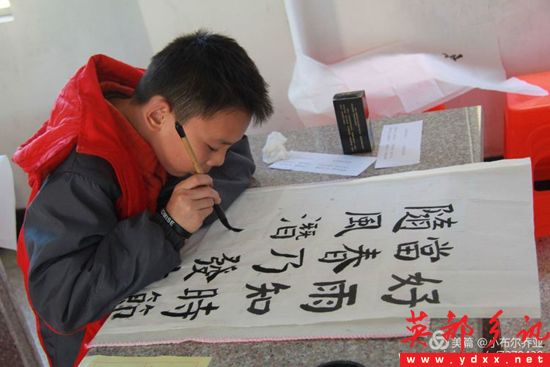 好雨知時節
當春乃發
隨風潛
美篇 @小布尔乔业
英都乡讯
www.ydxx.net